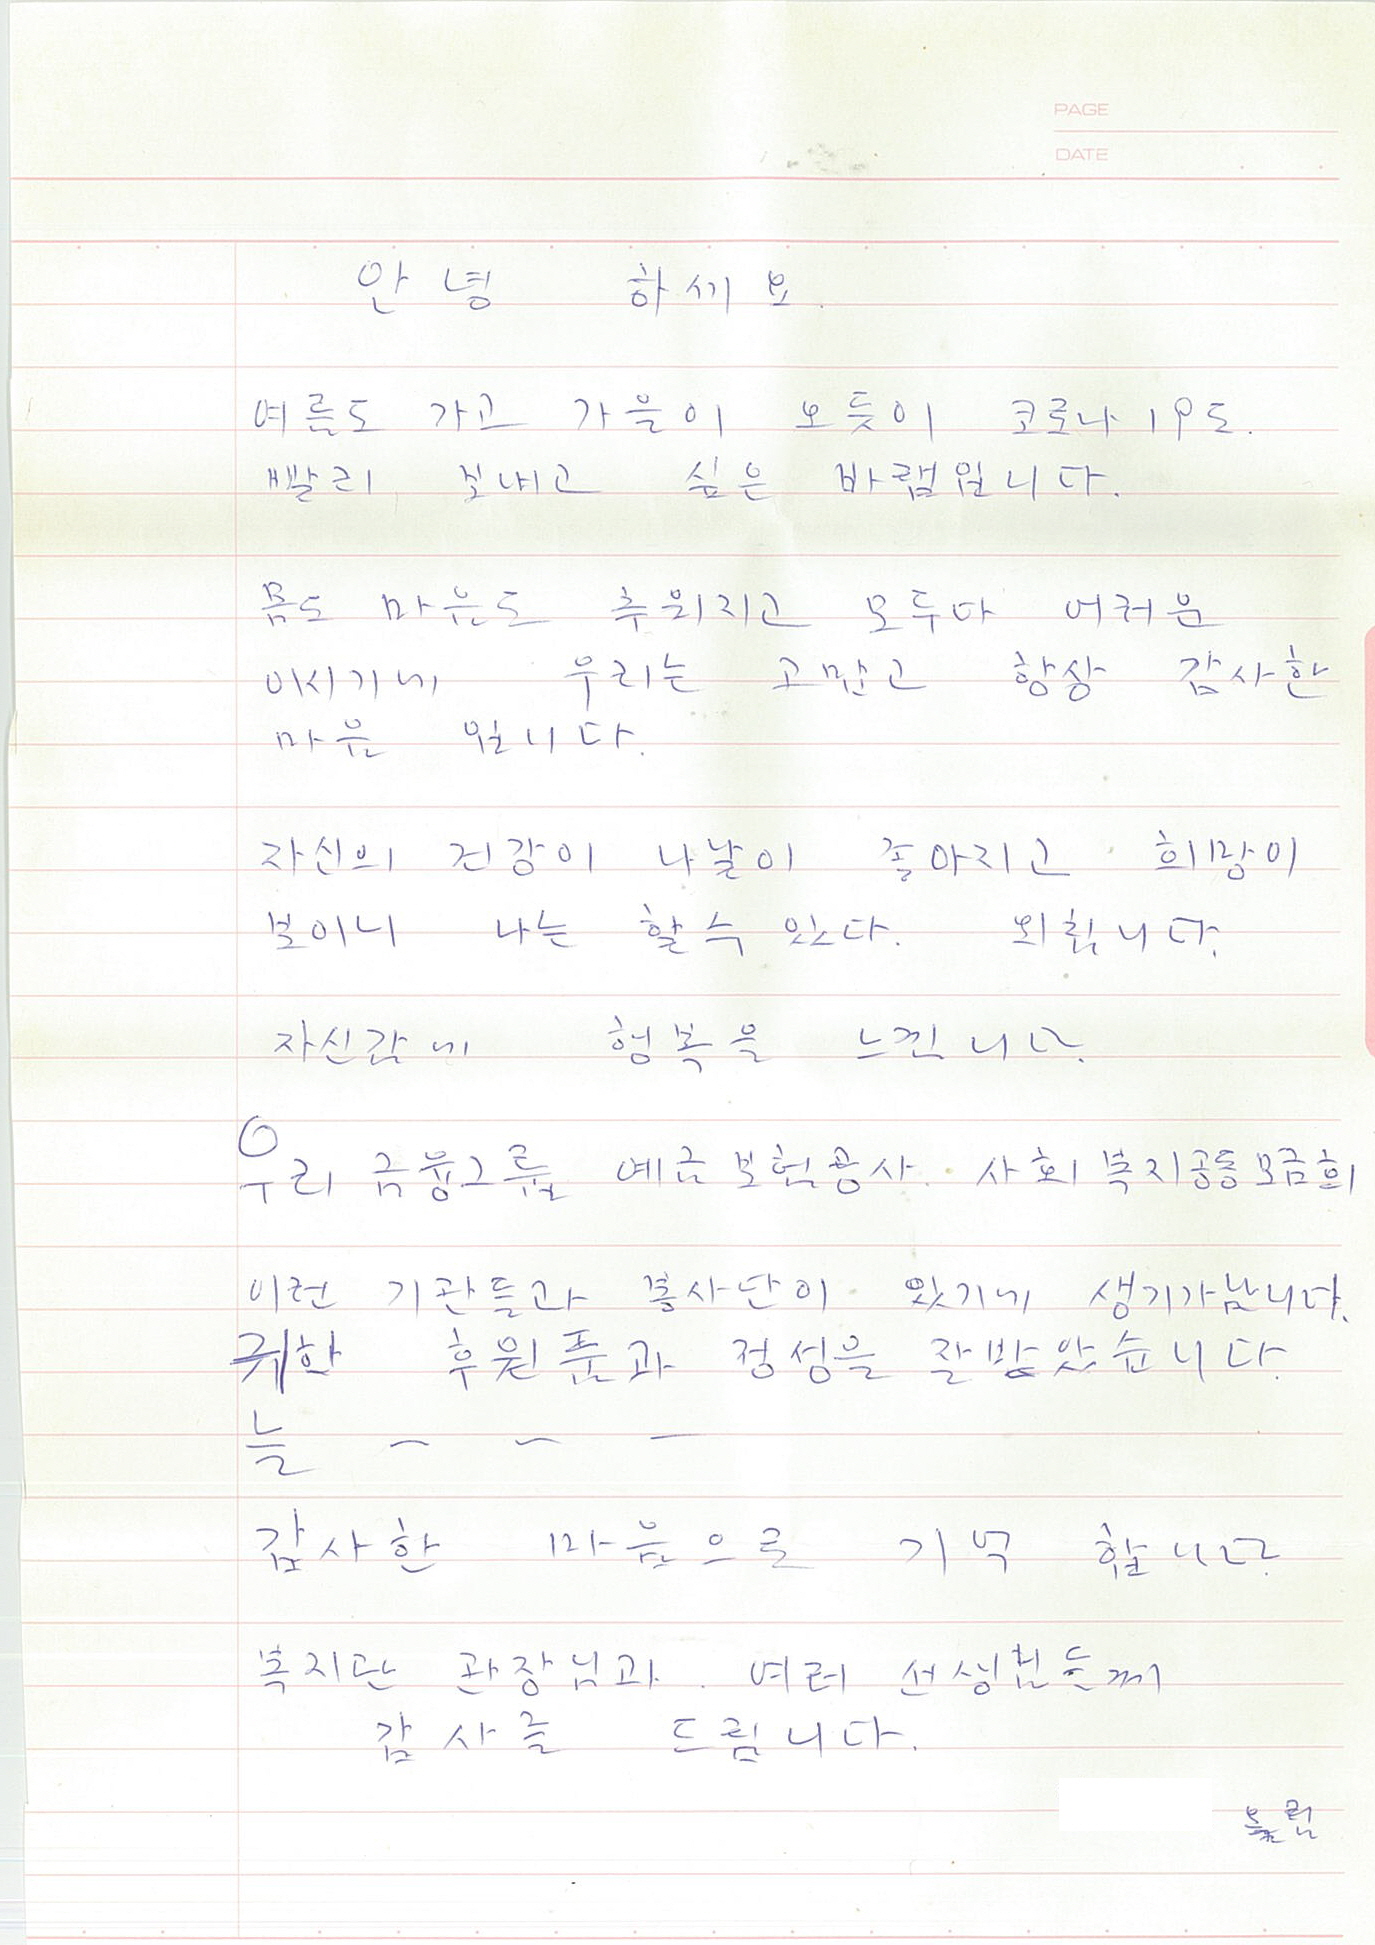 PAGE
DATE
안녕 하세요.
여름도 가고 가을이 오듯이 코로나19도.
빨리 보내고 싶은 바램입니다.
몸도 마음도 추워지고 모두다 어려운
이시기에 우리는 고맙고 항상 감사한
마음 입니다.
자신의 건강이 나날이 좋아지고 희망이
보이니 나는 할수 있다. 외칩니다.
자신감에 행복을 느낀니다.
우리 금융그룹 예금보험공사. 사회복지공동모금회
이런 기관들과 봉사단이 있기에 생기가납니다.
귀한 후원품과 정성을 잘받았습니다.
늘 ー ー ー
감사한 마음으로 기억 합니다.
복지단 관장님과. 여러 선생님들께
감사를 드림니다.
올림